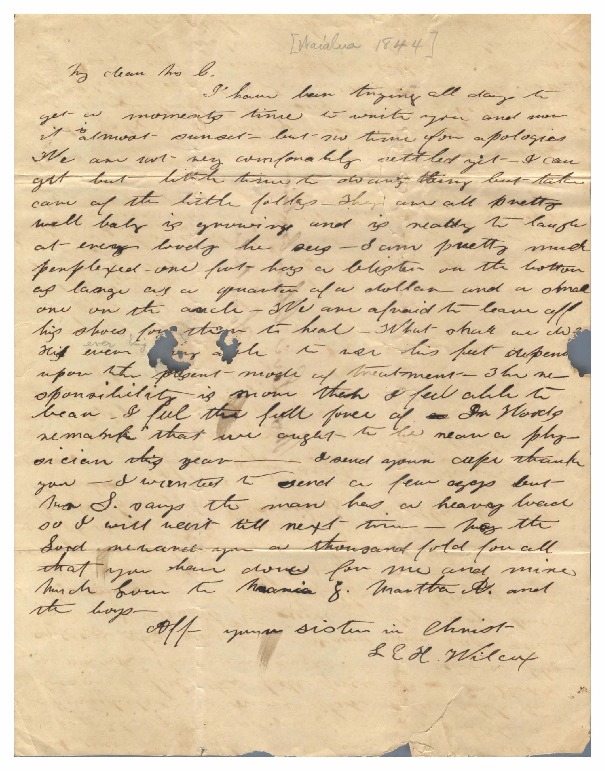 [Waialua 1844]
My dear Mrs C.
I have been trying all day to
get a moments time to write you and now
it is almost sunset - but no time for apologies
We are not very comfortably settled yet - I can
get but little time to do any thing but take
care of the little folks - They are all pretty
well baby is growing and is ready to laugh
at every body he sees - I am pretty much
perplexed - one foot has a blister on the bottom
as large as a quarter of a dollar - and a small
one on the - We are afraid to leave off
his shoes for them to heal - What shall we do?
ever being
His ever able to use his feet depends
upon the present mode of treatment - The re-
sponsibility is more than I feel able to
bear - I feel the full force of Dr Woods
remark that we ought to be near a phy-
sician this year - I send your cape thank
you - I wanted to send a few eggs but
Mr S. says the man has a heavy load
so I will wait till next time - May the
Lord reward you a thousand fold for all
that you have done for me and mine
Much love to Maria J. Martha A. and
the boys -
Aff your sister in Christ
L E H. Wilcox